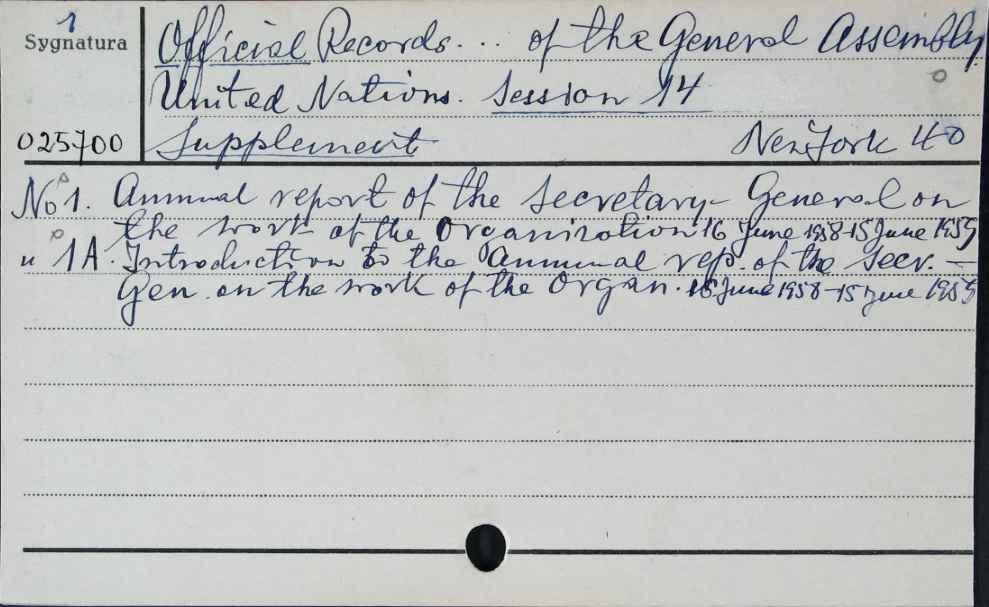 1
Sygnatura
025700
Official Records... of the General Assembly
United Nations. Session 14
Supplement New York 40
No 1. Annual report of the Secretary-General on
the work of the Organization 16 June 1958-15 June 1959
" 1A. Introduction to the Annual rep. of the Secr.-
Gen. on the work of the Organ. 16 June 1958-15 June 1959